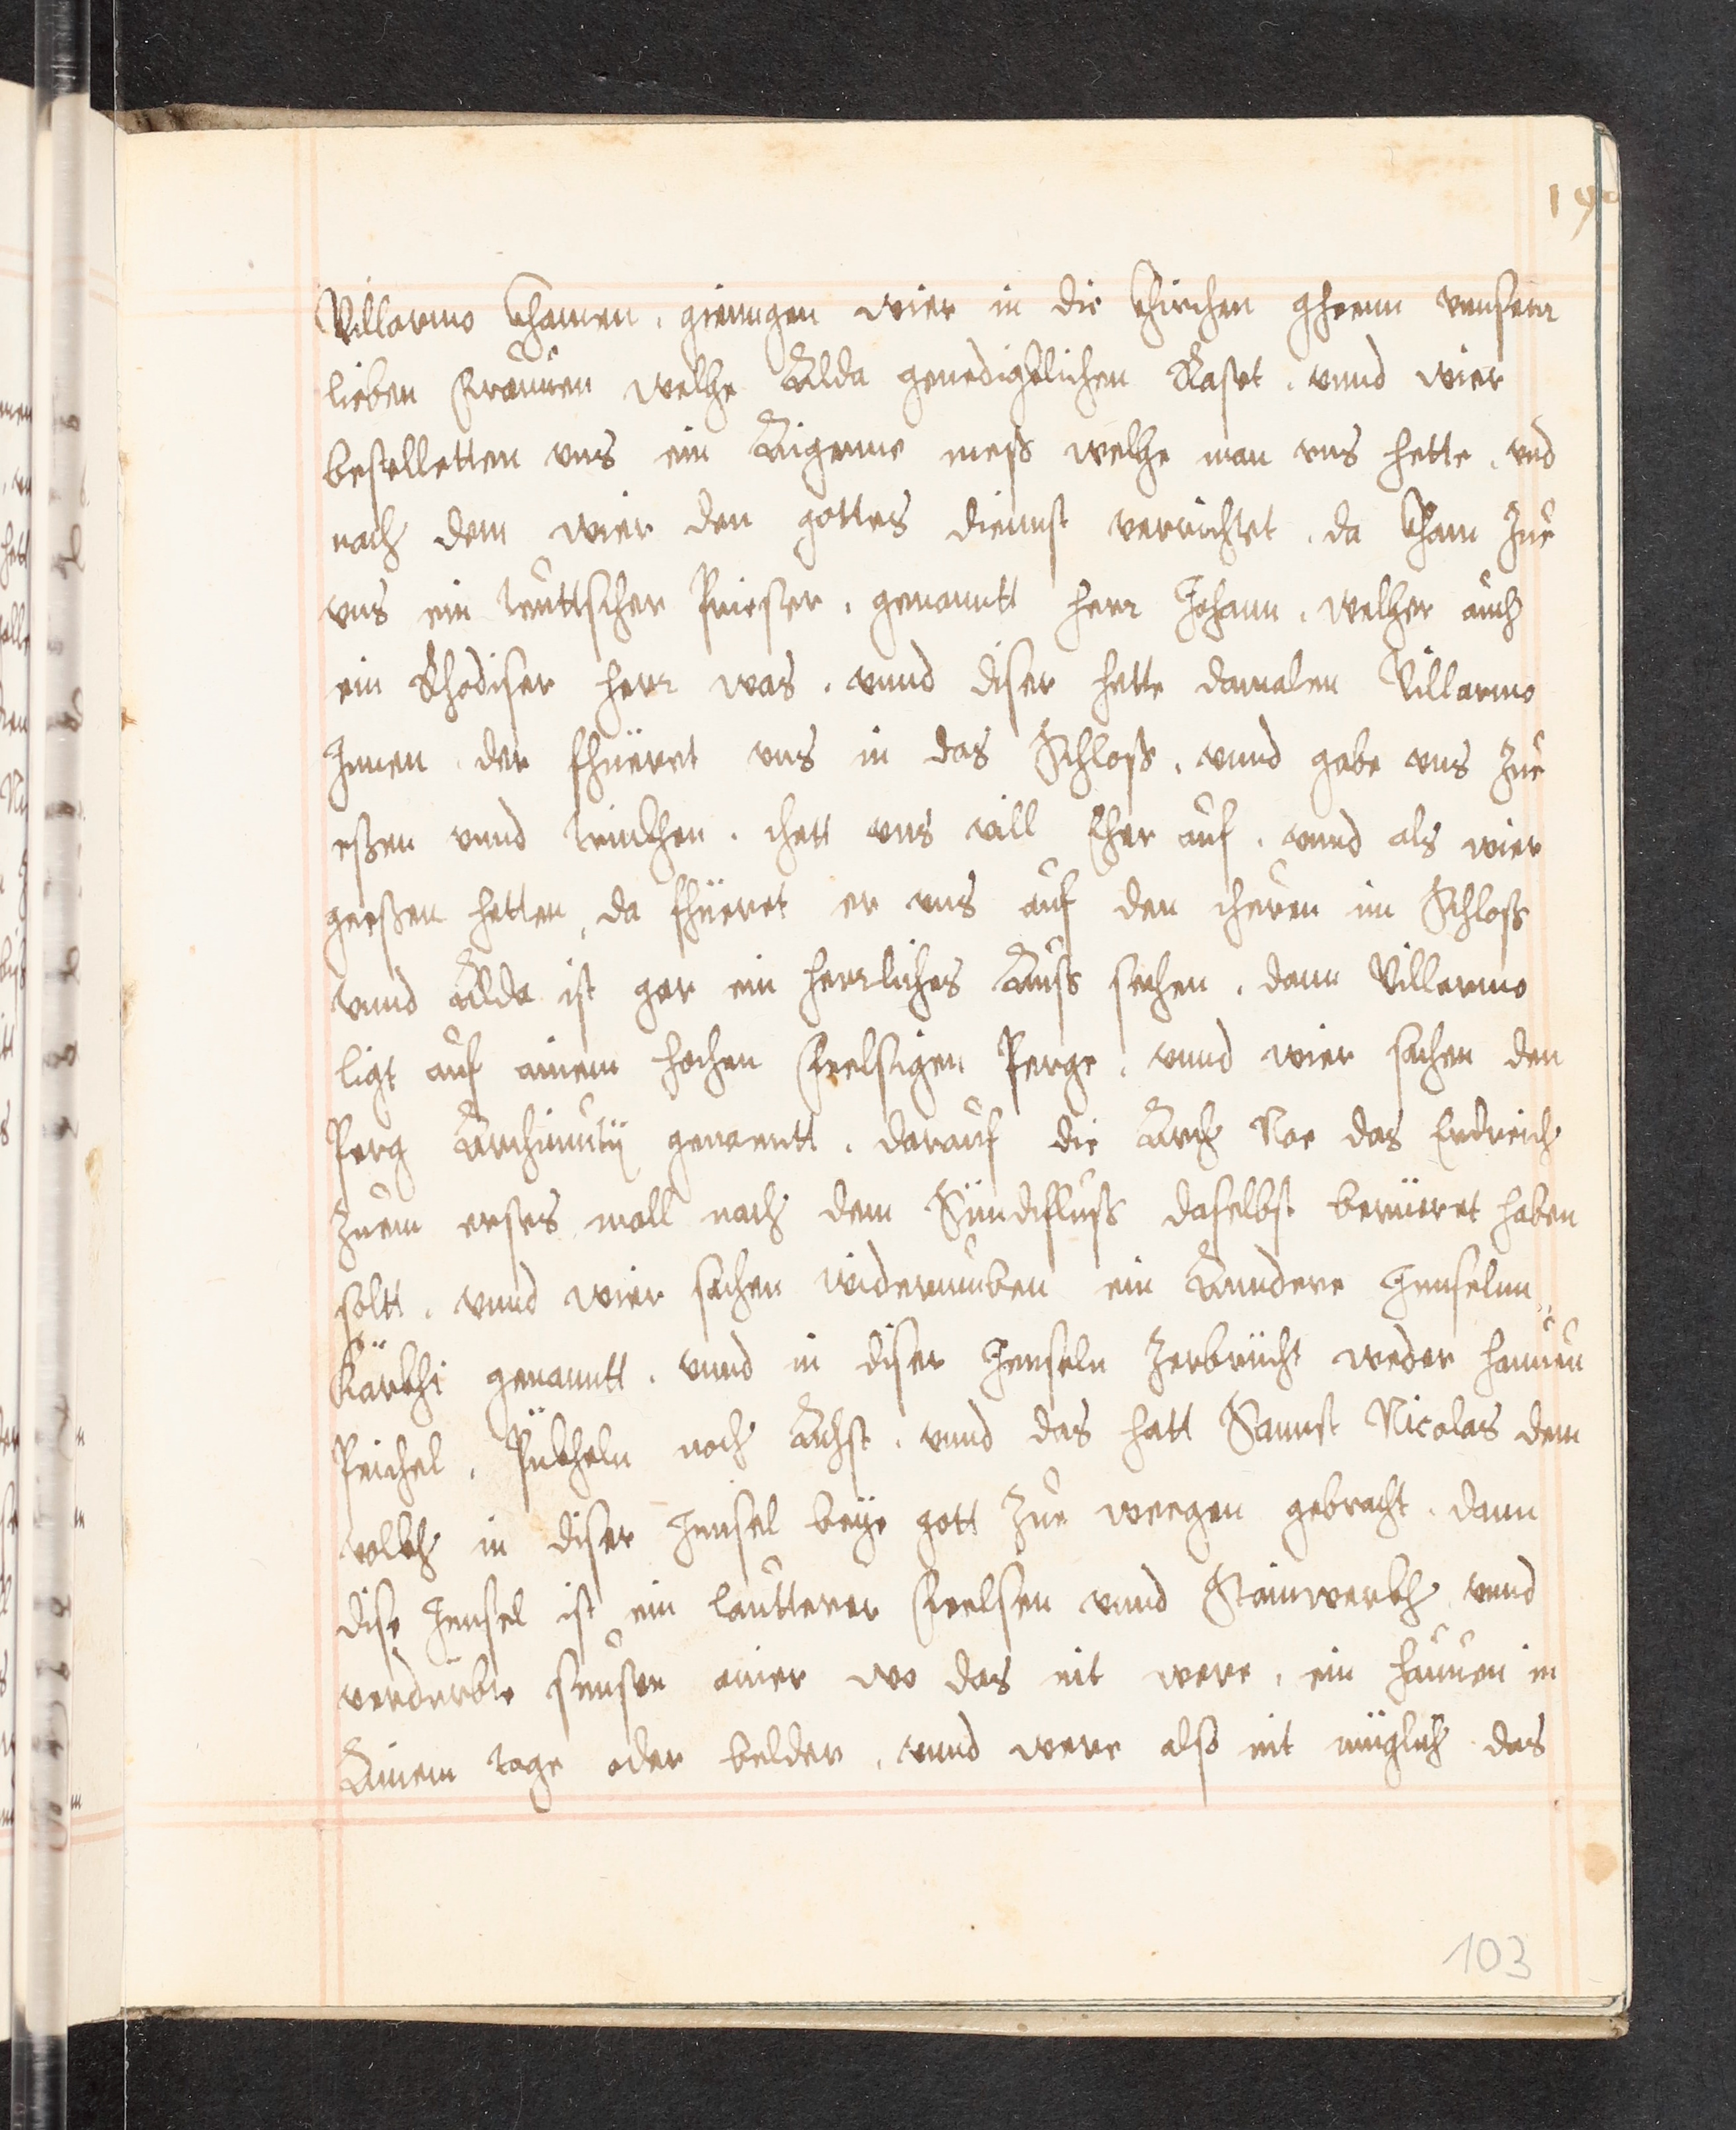 190
Villarmo khamen, giengen wier in die khirchen gheenn unnserr
lieben Frauuen welche Alda genedigkhlichen Rastet, unnd wier
bestelletten uns ein Aigenne mess welche man uns hette, und
nach dem wier den gottes diennst verrichtet, da kham Zue
uns ein teuttscher Priester, genanntt herr Johann, welcher auch
ein Rhodiser herr was, unnd diser hette damalen Villarmo
Innen, der fhüeret uns in das Schloss, unnd gabe uns Zue
essen unnd trinkhen, thett uns vill Eher auf, unnd als wier
geessen hetten, da fhüeret er uns auf den thuren im Schloss
unnd Alda ist gar ein herrliches Auss sechen, dann Villermo
ligt auf ainem hochen Feelsigen Perge, unnd wier sachen den
Perg genanntt, darauf die Arch Noe das Erdreich
Zuem erstes mall nach dem Sündtfluss daselbst berüeret haben
soltt, unnd wier sachen widerumben ein Anndere Innselnn
Kärkhi genanntt, unnd in diser Innseln Zerbrücht weder hauuen
Peichel, Pukheln noch Achst, unnd das hatt Sannst Nicolas dem
volkh in diser Innsel beye gott Zue weegen gebracht, dann
dise Innsel ist ein lautterer Feelsen unnd Stainwerkh, unnd
verdurbte sunsten ainer wo das nit were, ein hauuen in
Ainem tage oder belder, unnd were also nit müglich das
103